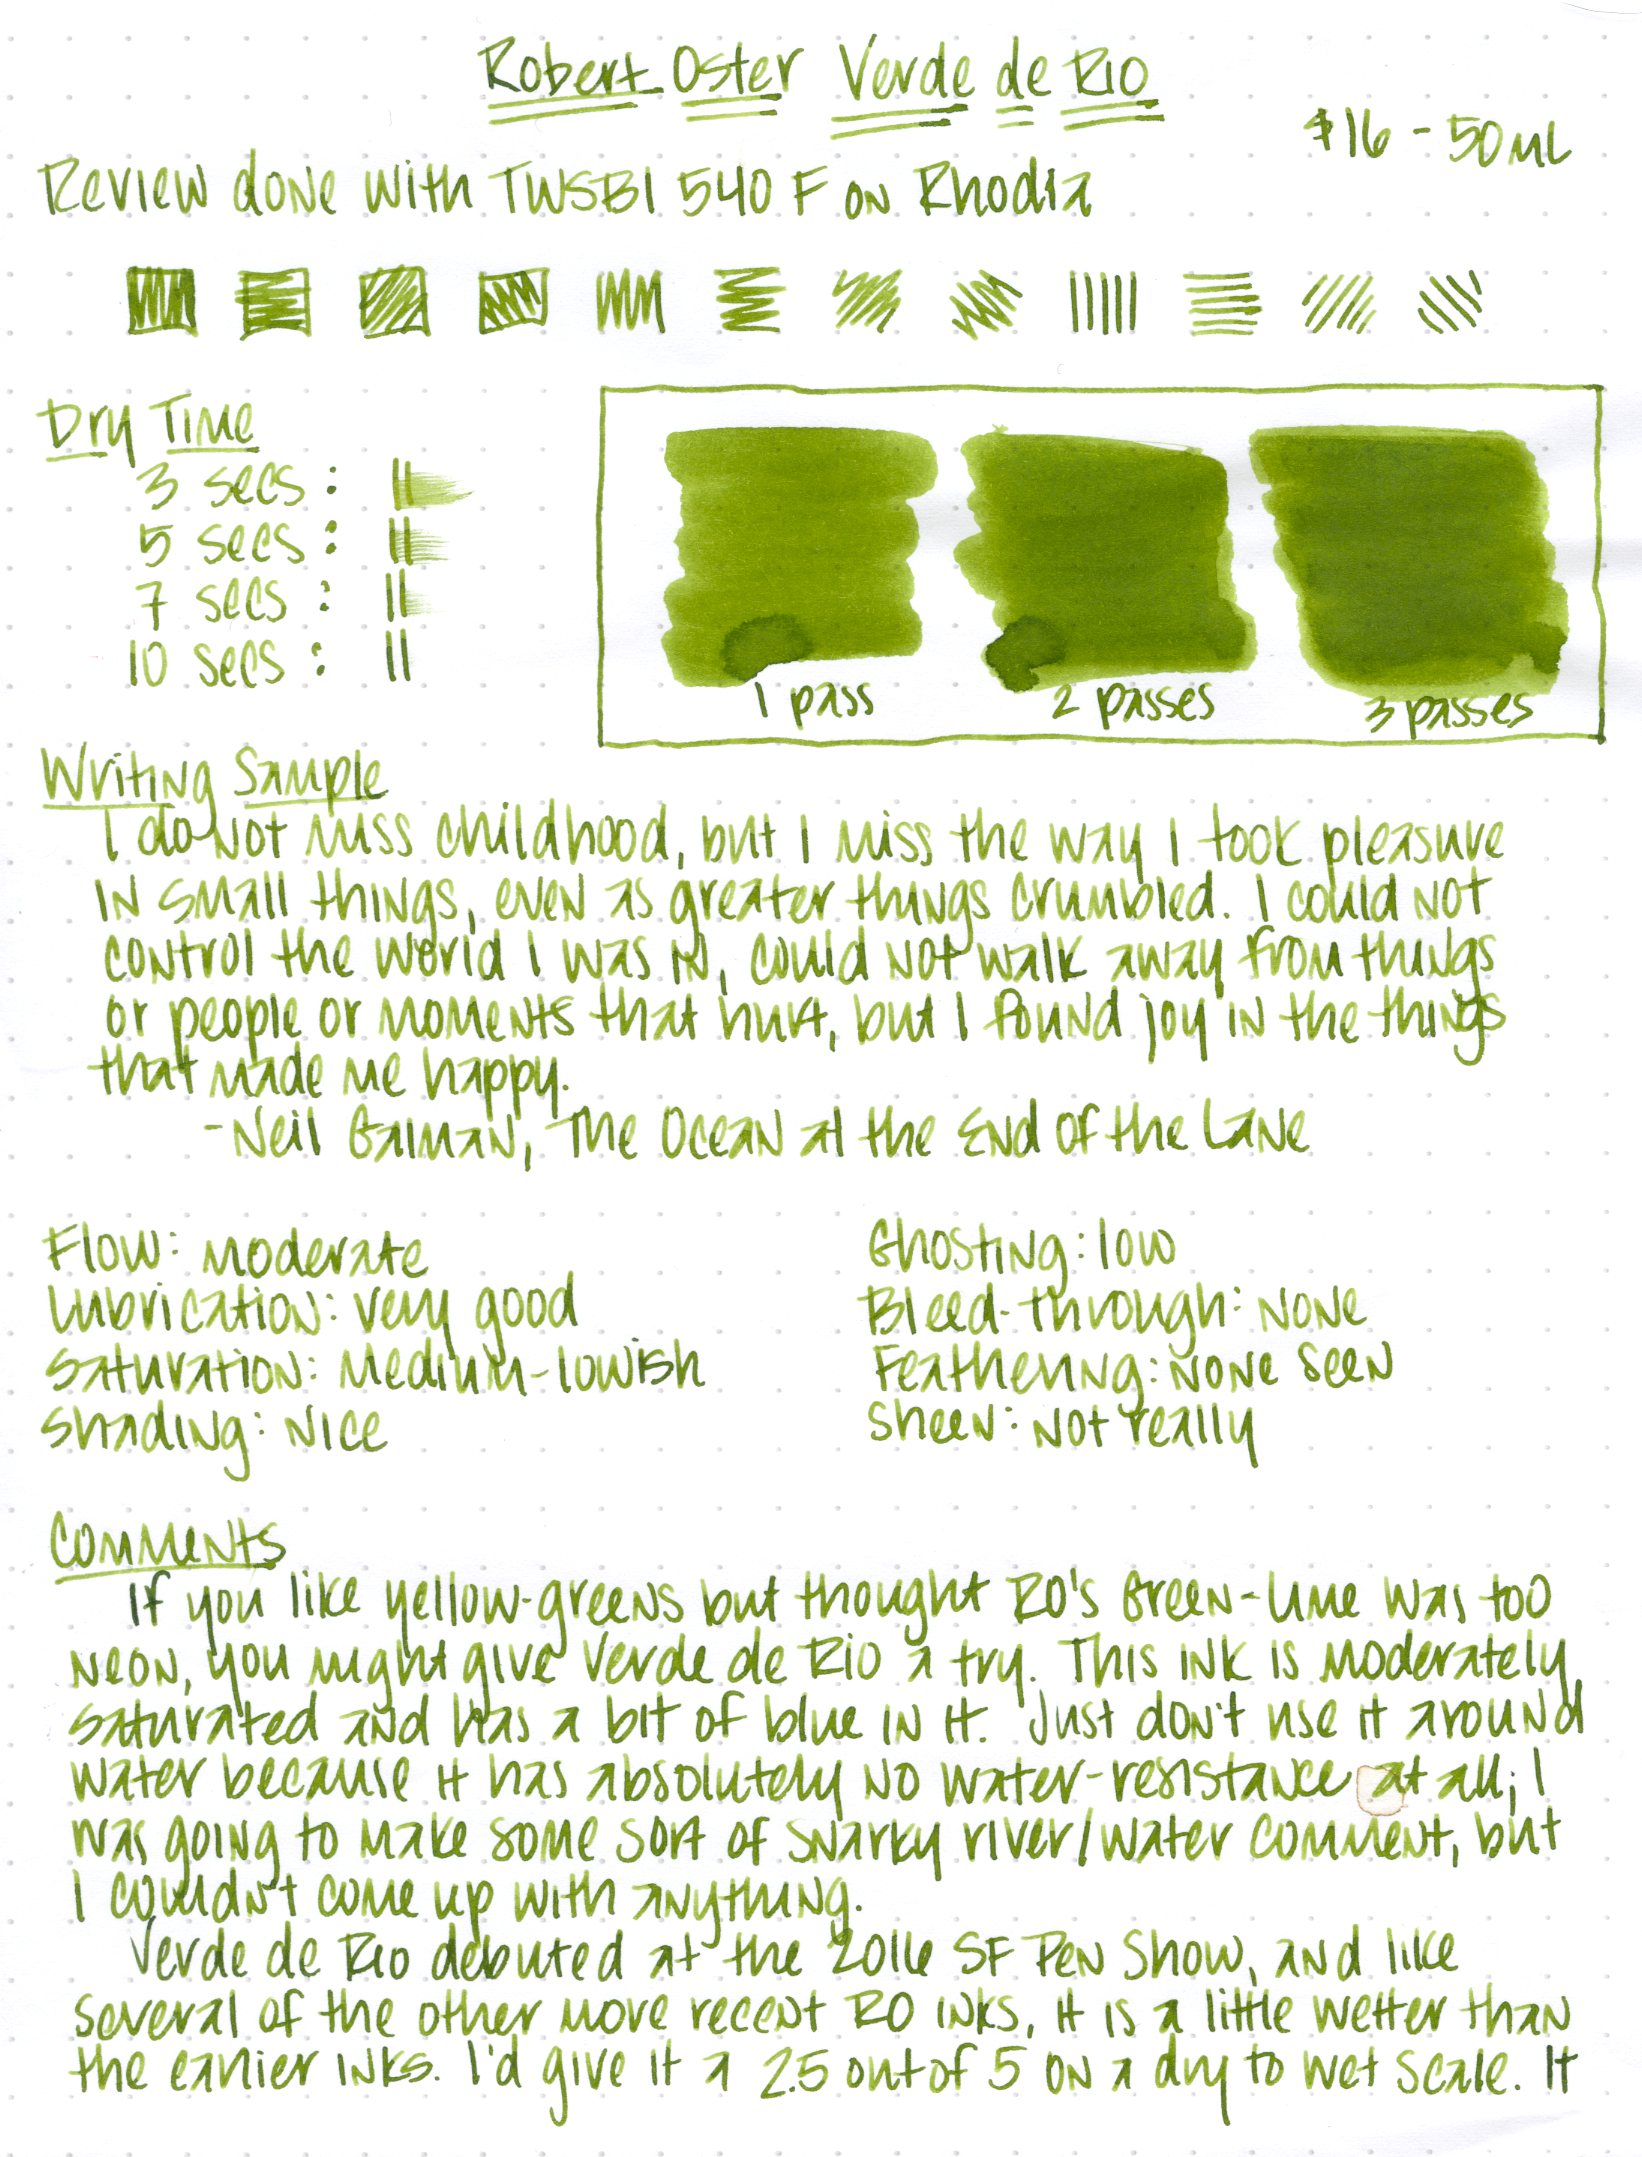 Robert Oster Verde de Rio
$16 - 50mL
Review done with TWSBI 540 F on Rhodia
Dry Time
3 secs:
5 secs:
7 secs:
10 secs:
1 pass
2 passes
3 passes
Writing Sample
I do not miss childhood, but I miss the way I took pleasure
in small things, even as greater things crumbled. I could not
control the world I was in, could not walk away from things
or people or moments that hurt, but I found joy in the things
that made me happy.
-Neil Gaiman, The Ocean at the End of the Lane
Flow: moderate
Lubrication: very good
Saturation: medium-lowish
Shading: nice
Ghosting: low
Bleed-through: none
Feathering: none seen
Sheen: not really
Comments
If you like yellow-greens but thought RO's Green-Lime was too
neon, you might give Verde de Rio a try. This ink is moderately
saturated and has a bit of blue in it. Just don't use it around
water because it has absolutely no water-resistance at all; I
was going to make some sort of snarky river/water comment, but
I couldn't come up with anything.
Verde de Rio debuted at the 2016 SF Pen Show, and like
several of the other more recent RO inks, it is a little wetter than
the earlier inks. I'd give it a 2.5 out of 5 on a dry to wet scale. It